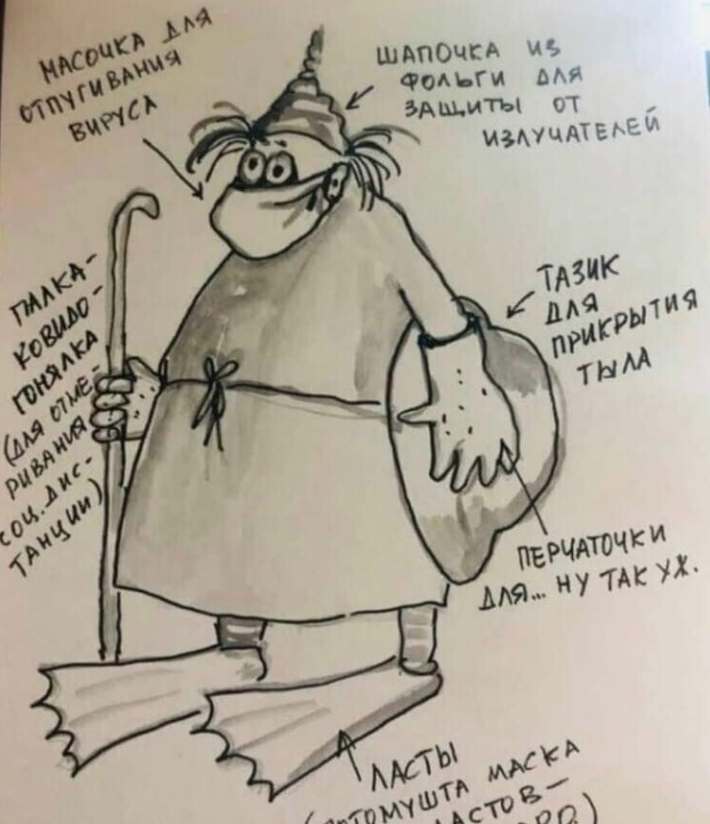 МАСОЧКА ДЛЯ
ОТПУГИВАНИЯ
ВИРУСА
ШАПОЧКА ИЗ
ФОЛЬГИ ДЛЯ
ЗАЩИТЫ ОТ
ИЗЛУЧАТЕЛЕЙ
ПАЛКА-
КОВИДО-
ГОНЯЛКА
(ДЛЯ ОТМЕ-
РИВАНИЯ
СОЦ. ДИС-
ТАНЦИИ)
ТАЗИК
ДЛЯ
ПРИКРЫТИЯ
ТЫЛА
ПЕРЧАТОЧКИ
ДЛЯ... НУ ТАК УЖ.
ЛАСТЫ
(ПОТОМУШТА МАСКА